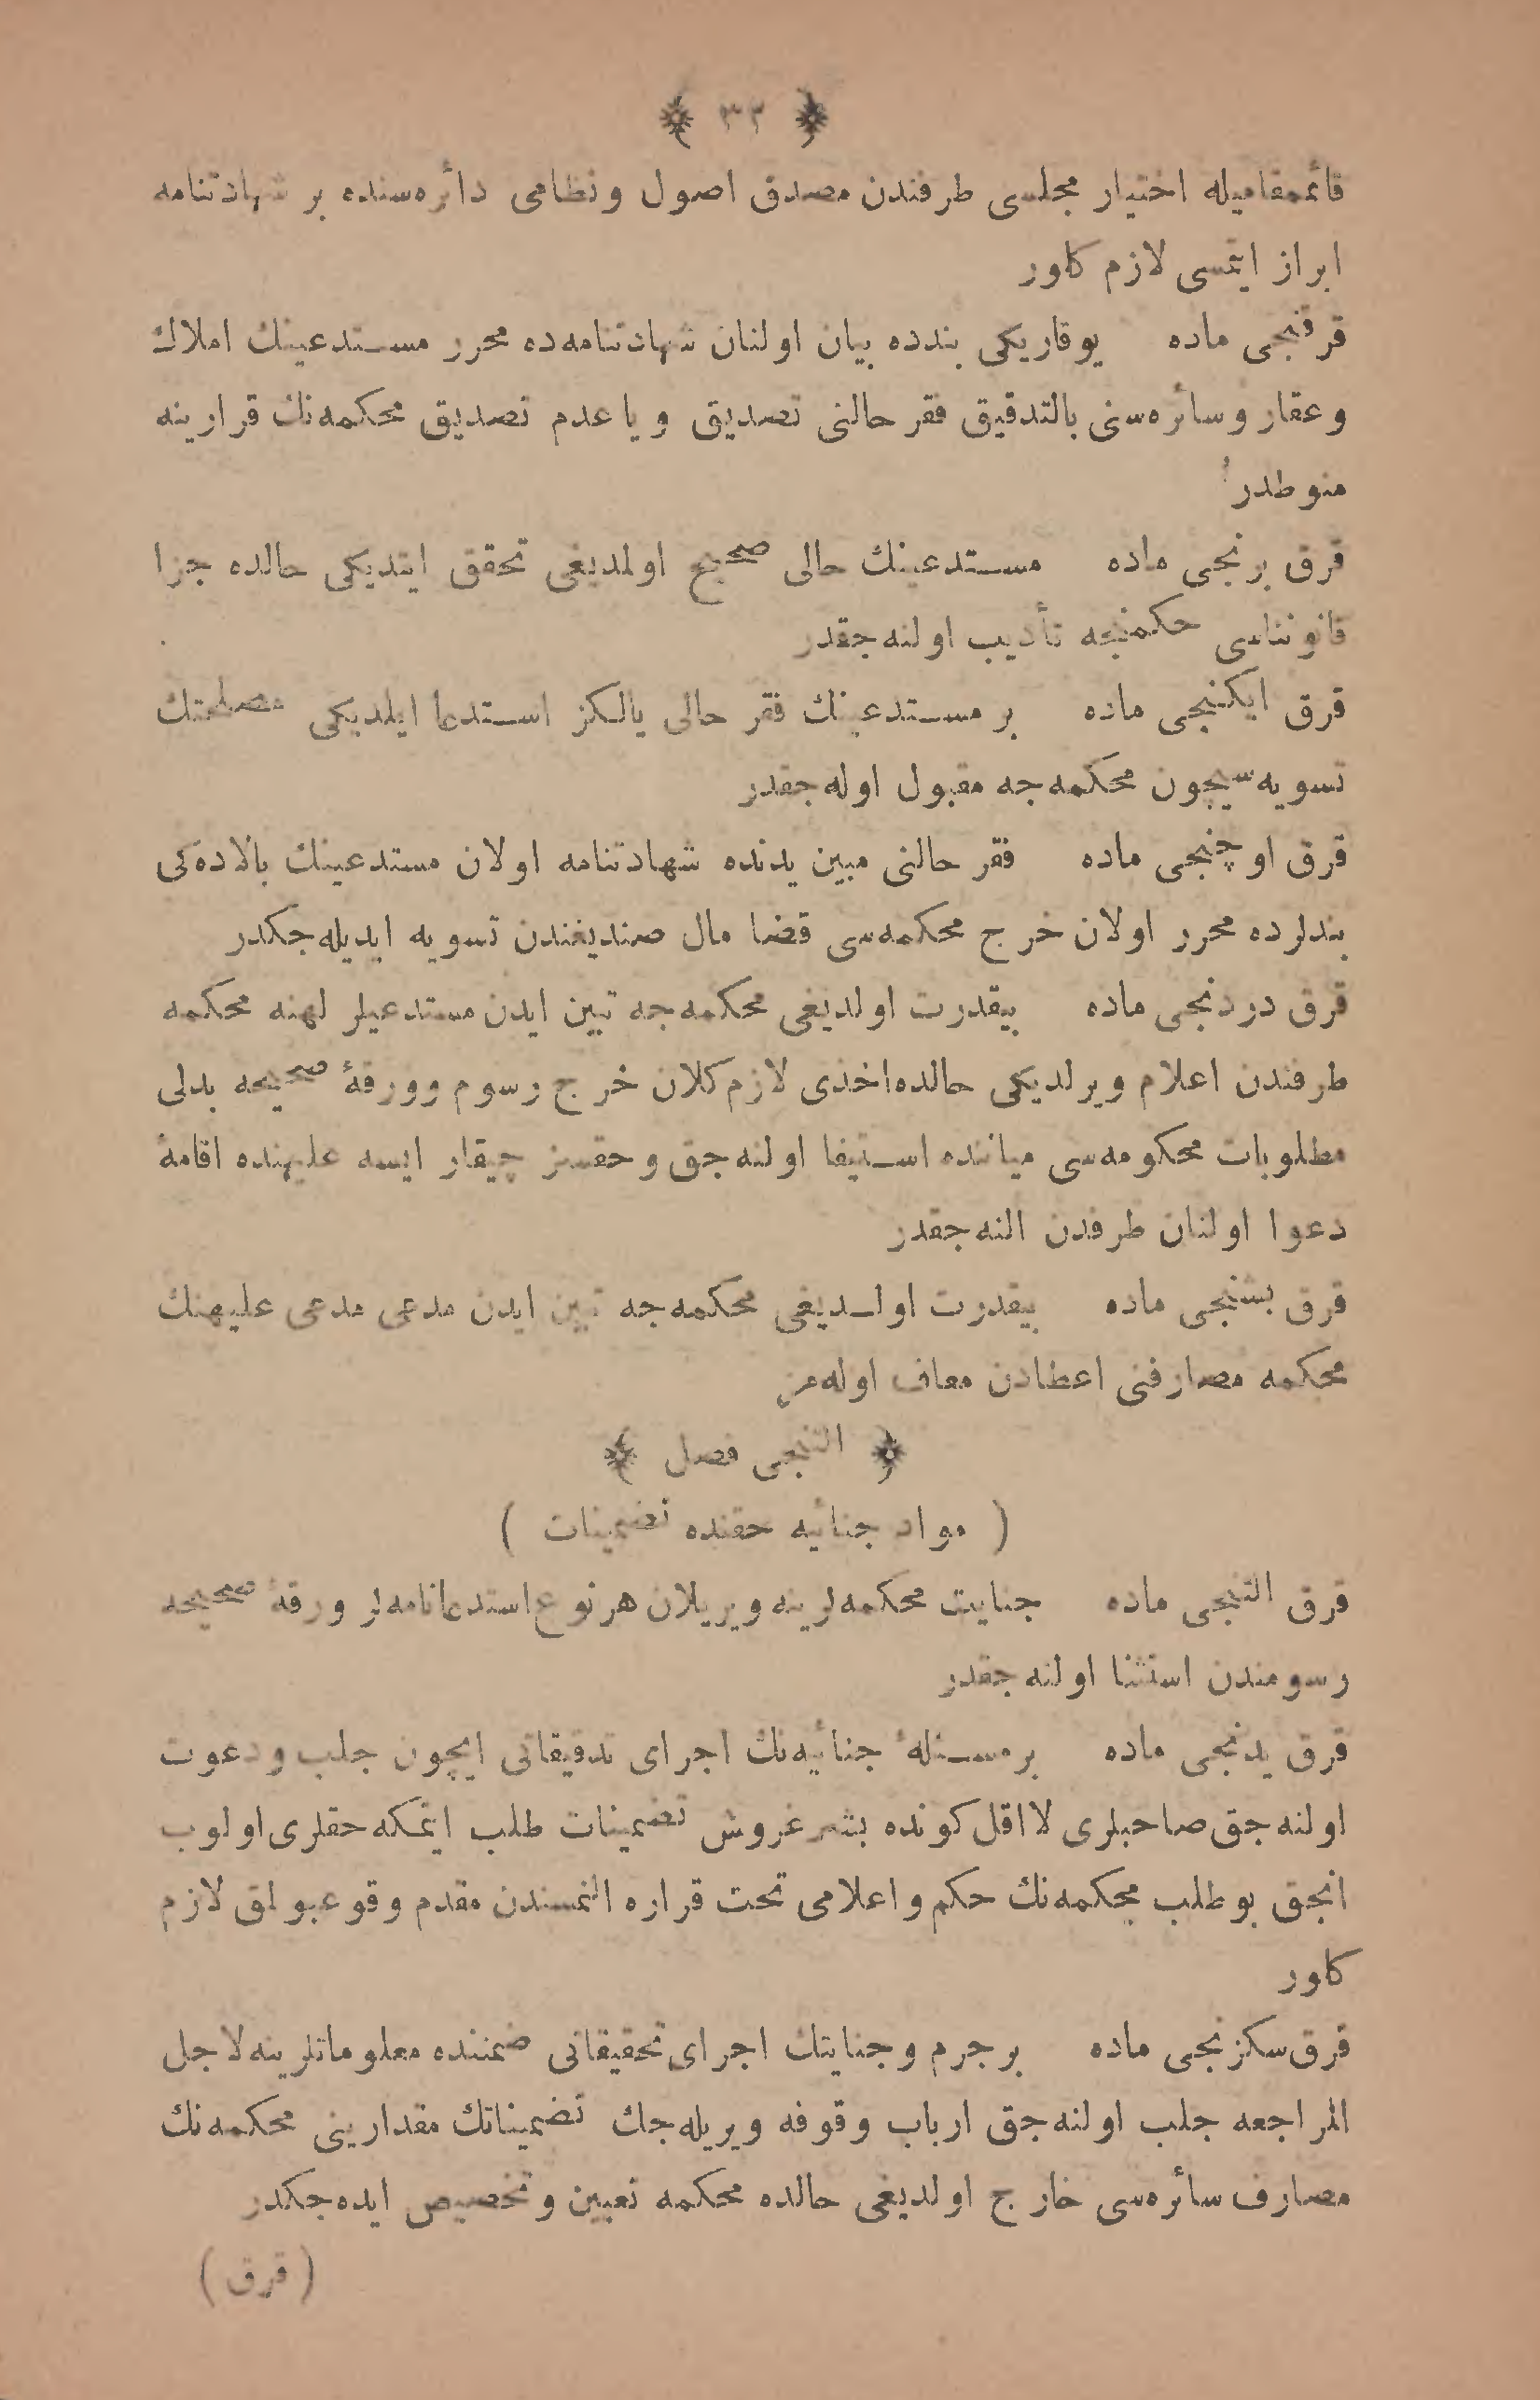 ﴿ ٣٢ ﴾
قائممقامیله اختیار مجلسی طرفندن مصدق اصول ونظامی دائره‌سنده بر شهادتنامه
ابراز ایتمسی لازم کلور
قرقنجی ماده یوقاریکی بندده بیان اولنان شهادتنامه‌ده محرر مستدعینك املاك
وعقار وسائره‌سنی بالتدقیق فقر حالنی تصدیق ویا عدم تصدیق محکمه‌نك قرارینه
منوطدر
قرق برنجی ماده مستدعینك حالی صحیح اولمدیغی تحقق ایتدیکی حالده جزا
قانوننامه‌سی حکمنجه تأدیب اولنه‌جقدر
قرق ایکنجی ماده بر مستدعینك فقر حالی یالکز استدعا ایلدیکی مصلحتك
تسویه‌سیچون محکمه‌جه مقبول اوله‌جقدر
قرق اوچنجی ماده فقر حالنی مبین یدنده شهادتنامه اولان مستدعینك بالاده‌کی
بندلرده محرر اولان خرج محکمه‌سی قضا مال صندیغندن تسویه ایدیله‌جکدر
قرق دردنجی ماده بیقدرت اولدیغی محکمه‌جه تبین ایدن مستدعیلر لهنه محکمه
طرفندن اعلام ویرلدیکی حالده اخذی لازم کلان خرج رسوم وورقهٔ صحیحه بدلی
مطلوبات محکومه‌سی میاننده استیفا اولنه‌جق وحقسز چیقار ایسه علیهنده اقامهٔ
دعوا اولنان طرفدن النه‌جقدر
قرق بشنجی ماده بیقدرت اولدیغی محکمه‌جه تبین ایدن مدعی مدعی علیهنك
محکمه مصارفنی اعطادن معاف اوله‌مز
﴿ التنجی فصل ﴾
( مواد جنائیه حقنده تضمینات )
قرق التنجی ماده جنایت محکمه‌لرینه ویریلان هرنوع استدعانامه‌لر ورقهٔ صحیحه
رسومندن استثنا اولنه‌جقدر
قرق یدنجی ماده بر مسئلهٔ جنائیه‌نك اجرای تدقیقاتی ایچون جلب ودعوت
اولنه‌جق صاحبلری لااقل کونده بشر غروش تضمینات طلب ایتمکه حقلری اولوب
انجق بو طلب محکمه‌نك حکم واعلامی تحت قراره النمسندن مقدم وقوعبولمق لازم
کلور
قرق سکزنجی ماده بر جرم وجنایتك اجرای تحقیقاتی ضمننده معلوماتلرینه لاجل
المراجعه جلب اولنه‌جق ارباب وقوفه ویریله‌جك تضمیناتك مقدارینی محکمه‌نك
مصارف سائره‌سی خارج اولدیغی حالده محکمه تعیین وتخصیص ایده‌جکدر
( قرق )